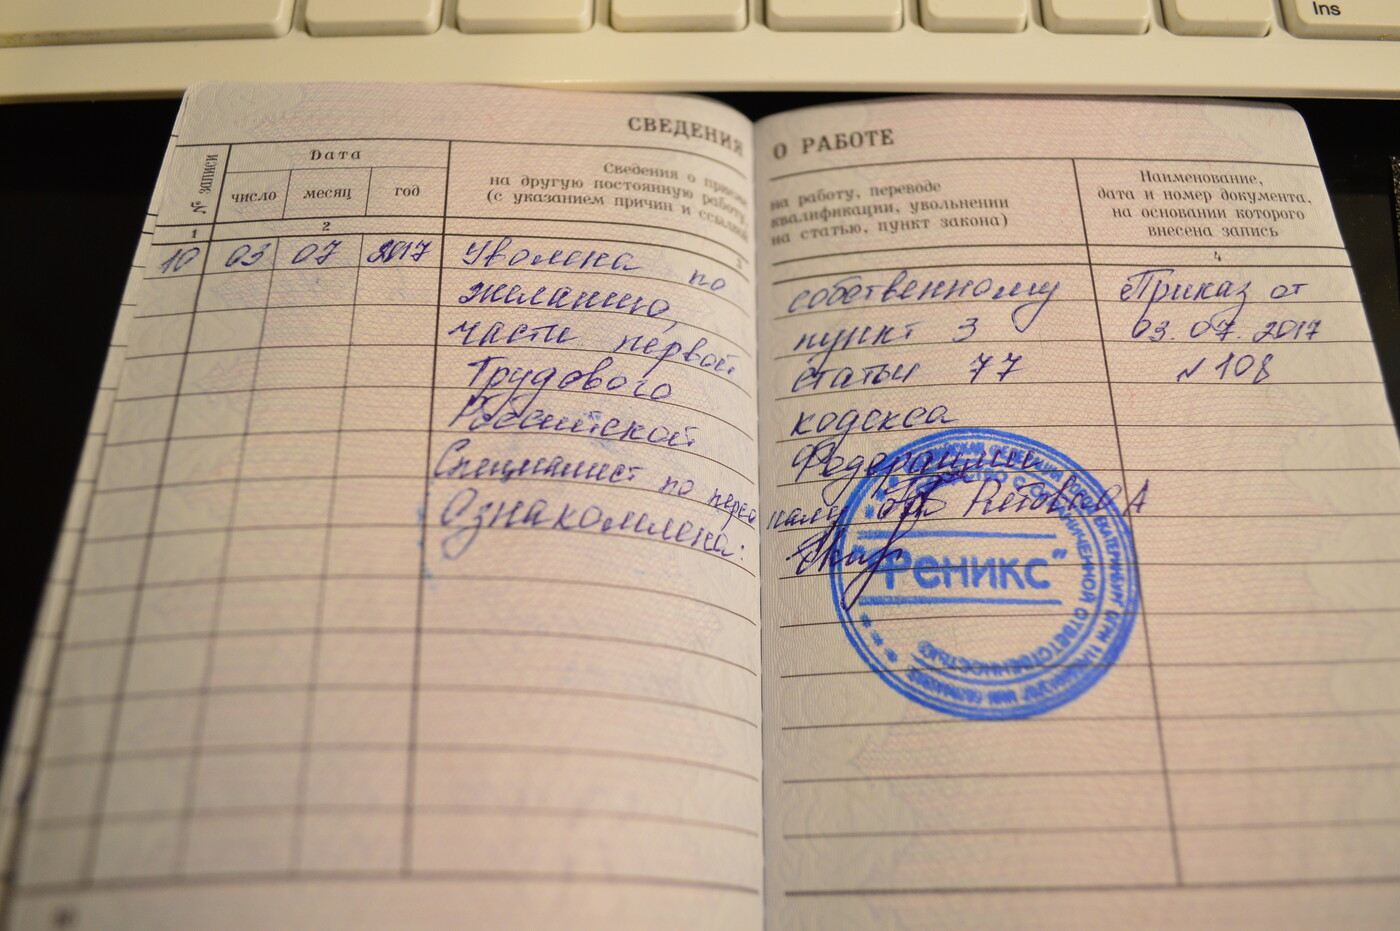 Ins
СВЕДЕНИЯ О РАБОТЕ
№ записи
Дата
число месяц год
Сведения о приеме на работу, переводе
на другую постоянную работу, квалификации, увольнении
(с указанием причин и ссылкой на статью, пункт закона)
Наименование,
дата и номер документа,
на основании которого
внесена запись
1 2 3 4
10 03 07 2017 Уволена по собственному Приказ от
желанию, пункт 3 03.07.2017
части первой статьи 77 № 108
Трудового кодекса
Российской Федерации
Специалист по персоналу
Ознакомлена:
ОБЩЕСТВО С ОГРАНИЧЕННОЙ ОТВЕТСТВЕННОСТЬЮ
"Феникс"